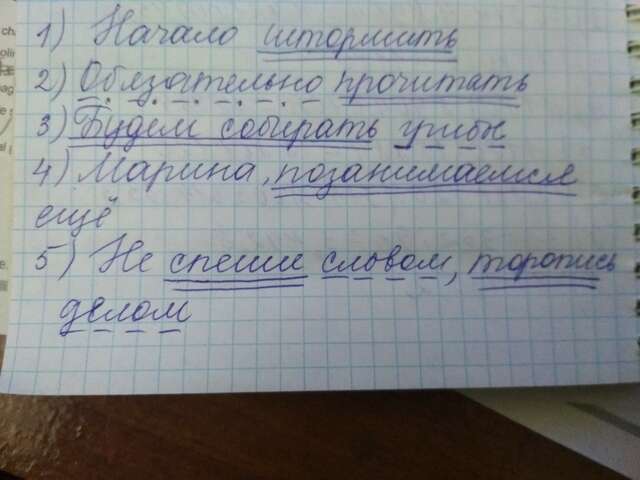 1) Начало штормить
2) Обязательно прочитать
3) Будем собирать грибы
4) Марина, позанимаемся
ещё
5) Не спеши словом, торопись
делом